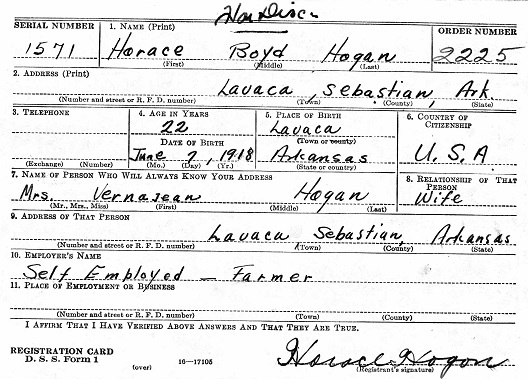 Hon Disc.
SERIAL NUMBER 1. NAME (Print) ORDER NUMBER
1571 Horace Boyd Hogan 2225
(First) (Middle) (Last)
2. ADDRESS (Print)
Lavaca, Sebastian, Ark.
(Number and street or R. F. D. number) (Town) (County) (State)
3. TELEPHONE 4. AGE IN YEARS 5. PLACE OF BIRTH 6. COUNTRY OF CITIZENSHIP
22 Lavaca
DATE OF BIRTH (Town or county)
June 7, 1918 Arkansas U. S. A
(Exchange) (Number) (Mo.) (Day) (Yr.) (State or country)
7. NAME OF PERSON WHO WILL ALWAYS KNOW YOUR ADDRESS 8. RELATIONSHIP OF THAT PERSON
Mrs. Vernajean Hogan Wife
(Mr., Mrs., Miss) (First) (Middle) (Last)
9. ADDRESS OF THAT PERSON
Lavaca Sebastian, Arkansas
(Number and street or R. F. D. number) (Town) (County) (State)
10. EMPLOYER'S NAME
Self Employed — Farmer
11. PLACE OF EMPLOYMENT OR BUSINESS
(Number and street or R. F. D. number) (Town) (County) (State)
I AFFIRM THAT I HAVE VERIFIED ABOVE ANSWERS AND THAT THEY ARE TRUE.
REGISTRATION CARD
D. S. S. Form 1 (over) 16—17105 Horace Hogan
(Registrant's signature)